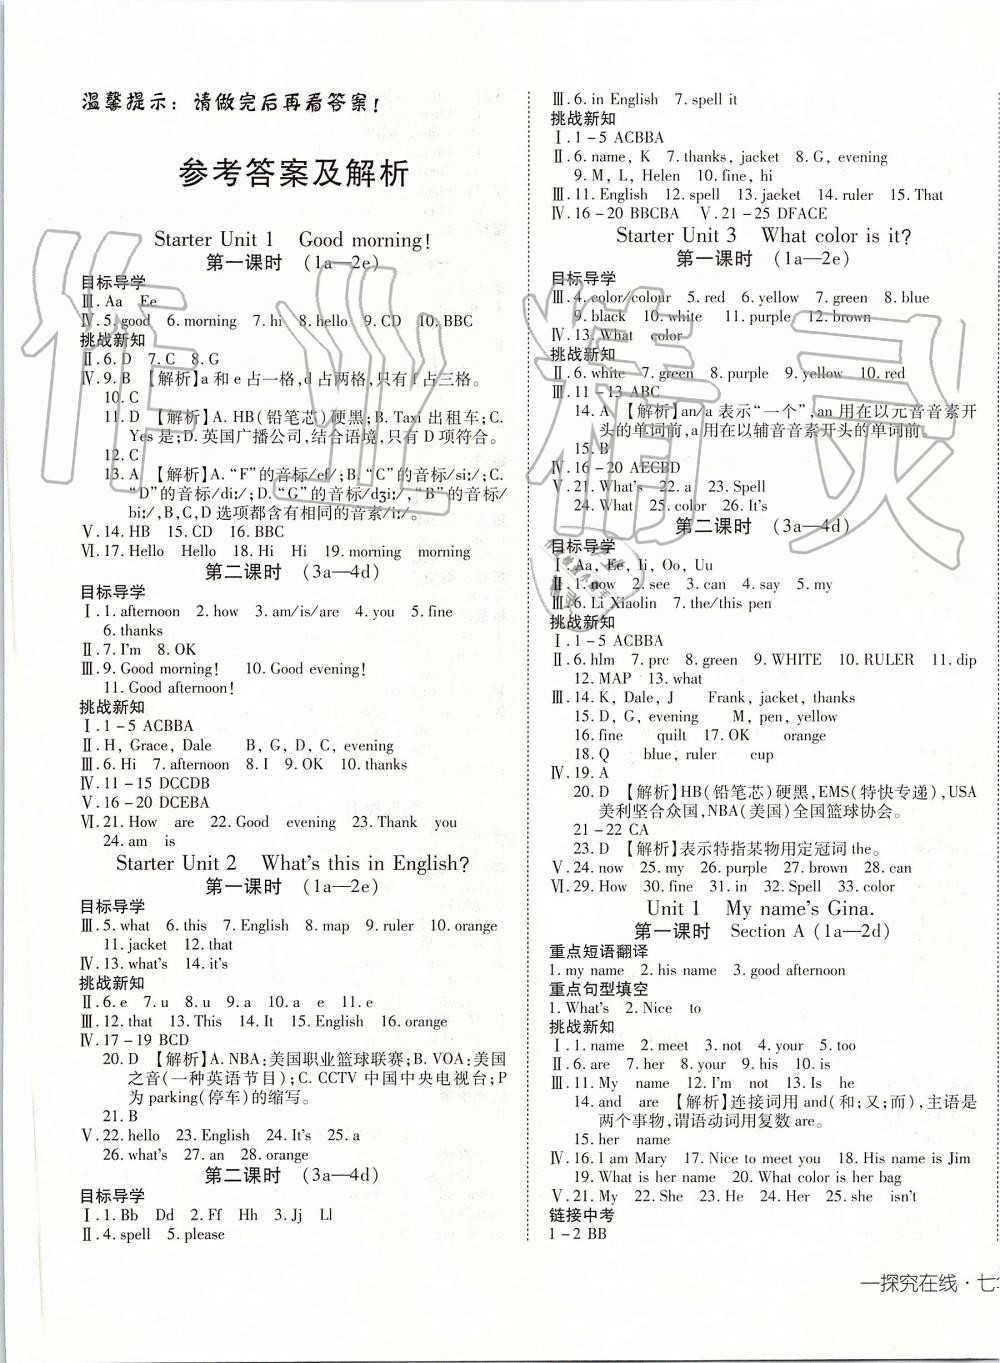 温馨提示：请做完后再看答案！
参考答案及解析
Starter Unit 1　Good morning!
第一课时　(1a—2e)
目标导学
Ⅲ. Aa　Ee
Ⅳ. 5. good　6. morning　7. hi　8. hello　9. CD　10. BBC
挑战新知
Ⅱ. 6. D　7. C　8. G
Ⅳ. 9. B　【解析】a 和 e 占一格,d 占两格,只有 f 占三格。
10. C
11. D　【解析】A. HB(铅笔芯)硬黑;B. Taxi 出租车;C.
Yes 是;D. 英国广播公司,结合语境,只有 D 项符合。
12. C
13. A　【解析】A. “F”的音标/ef/;B. “C”的音标/siː/;C.
“D”的音标/diː/;D. “G”的音标/dʒiː/,“B”的音标/
biː/,B,C,D 选项都含有相同的音素/iː/。
Ⅴ. 14. HB　15. CD　16. BBC
Ⅵ. 17. Hello　Hello　18. Hi　Hi　19. morning　morning
第二课时　(3a—4d)
目标导学
Ⅰ. 1. afternoon　2. how　3. am/is/are　4. you　5. fine
6. thanks
Ⅱ. 7. I'm　8. OK
Ⅲ. 9. Good morning!　10. Good evening!
11. Good afternoon!
挑战新知
Ⅰ. 1－5 ACBBA
Ⅱ. H, Grace, Dale　　B, G, D, C, evening
Ⅲ. 6. Hi　7. afternoon　8. I　9. OK　10. thanks
Ⅳ. 11－15 DCCDB
Ⅴ. 16－20 DCEBA
Ⅵ. 21. How　are　22. Good　evening　23. Thank　you
24. am　is
Starter Unit 2　What's this in English?
第一课时　(1a—2e)
目标导学
Ⅲ. 5. what　6. this　7. English　8. map　9. ruler　10. orange
11. jacket　12. that
Ⅳ. 13. what's　14. it's
挑战新知
Ⅱ. 6. e　7. u　8. u　9. a　10. a　e　11. e
Ⅲ. 12. that　13. This　14. It　15. English　16. orange
Ⅳ. 17－19 BCD
20. D　【解析】A. NBA:美国职业篮球联赛;B. VOA:美国
之音(一种英语节目);C. CCTV 中国中央电视台;P
为 parking(停车)的缩写。
21. B
Ⅴ. 22. hello　23. English　24. It's　25. a
26. what's　27. an　28. orange
第二课时　(3a—4d)
目标导学
Ⅰ. 1. Bb　Dd　2. Ff　Hh　3. Jj　Ll
Ⅱ. 4. spell　5. please
Ⅲ. 6. in English　7. spell it
挑战新知
Ⅰ. 1－5 ACBBA
Ⅱ. 6. name, K　7. thanks, jacket　8. G, evening
9. M, L, Helen　10. fine, hi
Ⅲ. 11. English　12. spell　13. jacket　14. ruler　15. That
Ⅳ. 16－20 BBCBA　Ⅴ. 21－25 DFACE
Starter Unit 3　What color is it?
第一课时　(1a—2e)
目标导学
Ⅲ. 4. color/colour　5. red　6. yellow　7. green　8. blue
9. black　10. white　11. purple　12. brown
Ⅳ. 13. What　color
挑战新知
Ⅱ. 6. white　7. green　8. purple　9. yellow　10. red
Ⅲ. 11－13 ABC
14. A　【解析】an/a 表示“一个”,an 用在以元音音素开
头的单词前,a 用在以辅音音素开头的单词前。
15. B
Ⅳ. 16－20 AECBD
Ⅴ. 21. What's　22. a　23. Spell
24. What　25. color　26. It's
第二课时　(3a—4d)
目标导学
Ⅰ. Aa, Ee, Ii, Oo, Uu
Ⅱ. 1. now　2. see　3. can　4. say　5. my
Ⅲ. 6. Li Xiaolin　7. the/this pen
挑战新知
Ⅰ. 1－5 ACBBA
Ⅱ. 6. hlm　7. prc　8. green　9. WHITE　10. RULER　11. dip
12. MAP　13. what
Ⅲ. 14. K, Dale, J　　Frank, jacket, thanks
15. D, G, evening　　M, pen, yellow
16. fine　　quilt　17. OK　　orange
18. Q　　blue, ruler　　cup
Ⅳ. 19. A
20. D　【解析】HB(铅笔芯)硬黑,EMS(特快专递),USA
美利坚合众国,NBA(美国)全国篮球协会。
21－22 CA
23. D　【解析】表示特指某物用定冠词 the。
Ⅴ. 24. now　25. my　26. purple　27. brown　28. can
Ⅵ. 29. How　30. fine　31. an　32. Spell　33. color
Unit 1　My name's Gina.
第一课时　Section A (1a—2d)
重点短语翻译
1. my name　2. his name　3. good afternoon
重点句型填空
1. What's　2. Nice　to
挑战新知
Ⅰ. 1. name　2. meet　3. not　4. your　5. too
Ⅱ. 6. are　7. her　8. your　9. his　10. is
Ⅲ. 11. My　name　12. I'm　not　13. Is　he
14. and　are　【解析】连接词用 and(和;又;而),主语是
两个事物,谓语动词用复数 are。
15. her　name
Ⅳ. 16. I am Mary　17. Nice to meet you　18. His name is Jim
19. What is her name　20. What color is her bag
Ⅴ. 21. My　22. She　23. He　24. Her　25. she　isn't
链接中考
1－2 BB
一探究在线·七
作业精灵